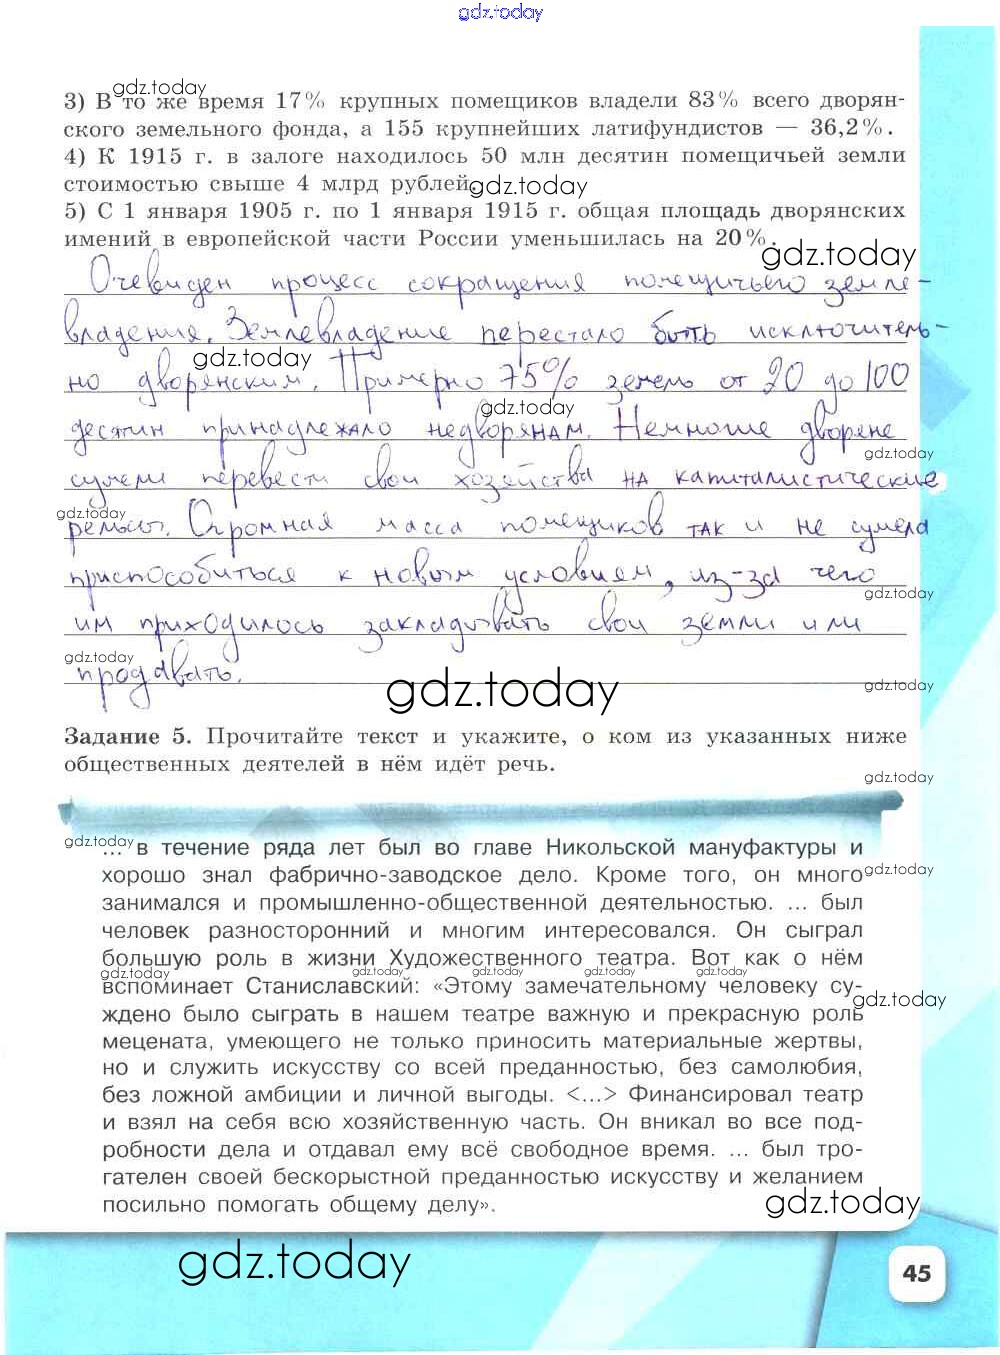 gdz.today
gdz.today
3) В то же время 17% крупных помещиков владели 83% всего дворян-
ского земельного фонда, а 155 крупнейших латифундистов — 36,2%.
4) К 1915 г. в залоге находилось 50 млн десятин помещичьей земли
стоимостью свыше 4 млрд рублей.
gdz.today
5) С 1 января 1905 г. по 1 января 1915 г. общая площадь дворянских
имений в европейской части России уменьшилась на 20%.
gdz.today
Очевиден процесс сокращения помещичьего земле-
владения. Землевладение перестало быть исключитель-
gdz.today
но дворянским. Примерно 75% земель от 20 до 100
gdz.today
десятин принадлежало недворянам. Немногие дворяне
gdz.today
сумели перевести свои хозяйства на капиталистические
gdz.today
рельсы. Огромная масса помещиков так и не сумела
приспособиться к новым условиям, из-за чего
gdz.today
им приходилось закладывать свои земли или
gdz.today
продавать.
gdz.today
gdz.today
Задание 5. Прочитайте текст и укажите, о ком из указанных ниже
общественных деятелей в нём идёт речь.
gdz.today
gdz.today
... в течение ряда лет был во главе Никольской мануфактуры и
хорошо знал фабрично-заводское дело. Кроме того, он много
gdz.today
занимался и промышленно-общественной деятельностью. ... был
человек разносторонний и многим интересовался. Он сыграл
большую роль в жизни Художественного театра. Вот как о нём
gdz.today gdz.today gdz.today gdz.today
вспоминает Станиславский: «Этому замечательному человеку су-
gdz.today
ждено было сыграть в нашем театре важную и прекрасную роль
мецената, умеющего не только приносить материальные жертвы,
но и служить искусству со всей преданностью, без самолюбия,
без ложной амбиции и личной выгоды. <...> Финансировал театр
и взял на себя всю хозяйственную часть. Он вникал во все под-
робности дела и отдавал ему всё свободное время. ... был тро-
гателен своей бескорыстной преданностью искусству и желанием
посильно помогать общему делу».
gdz.today
gdz.today
45